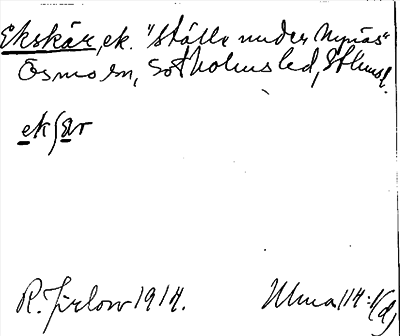 Ekskär, ek. "ställe under Nynäs"
Ösmo sn, Sotholms hd, Sthms l.
ekſær
R. Jirlow 1914. Ulma 114:1(d)